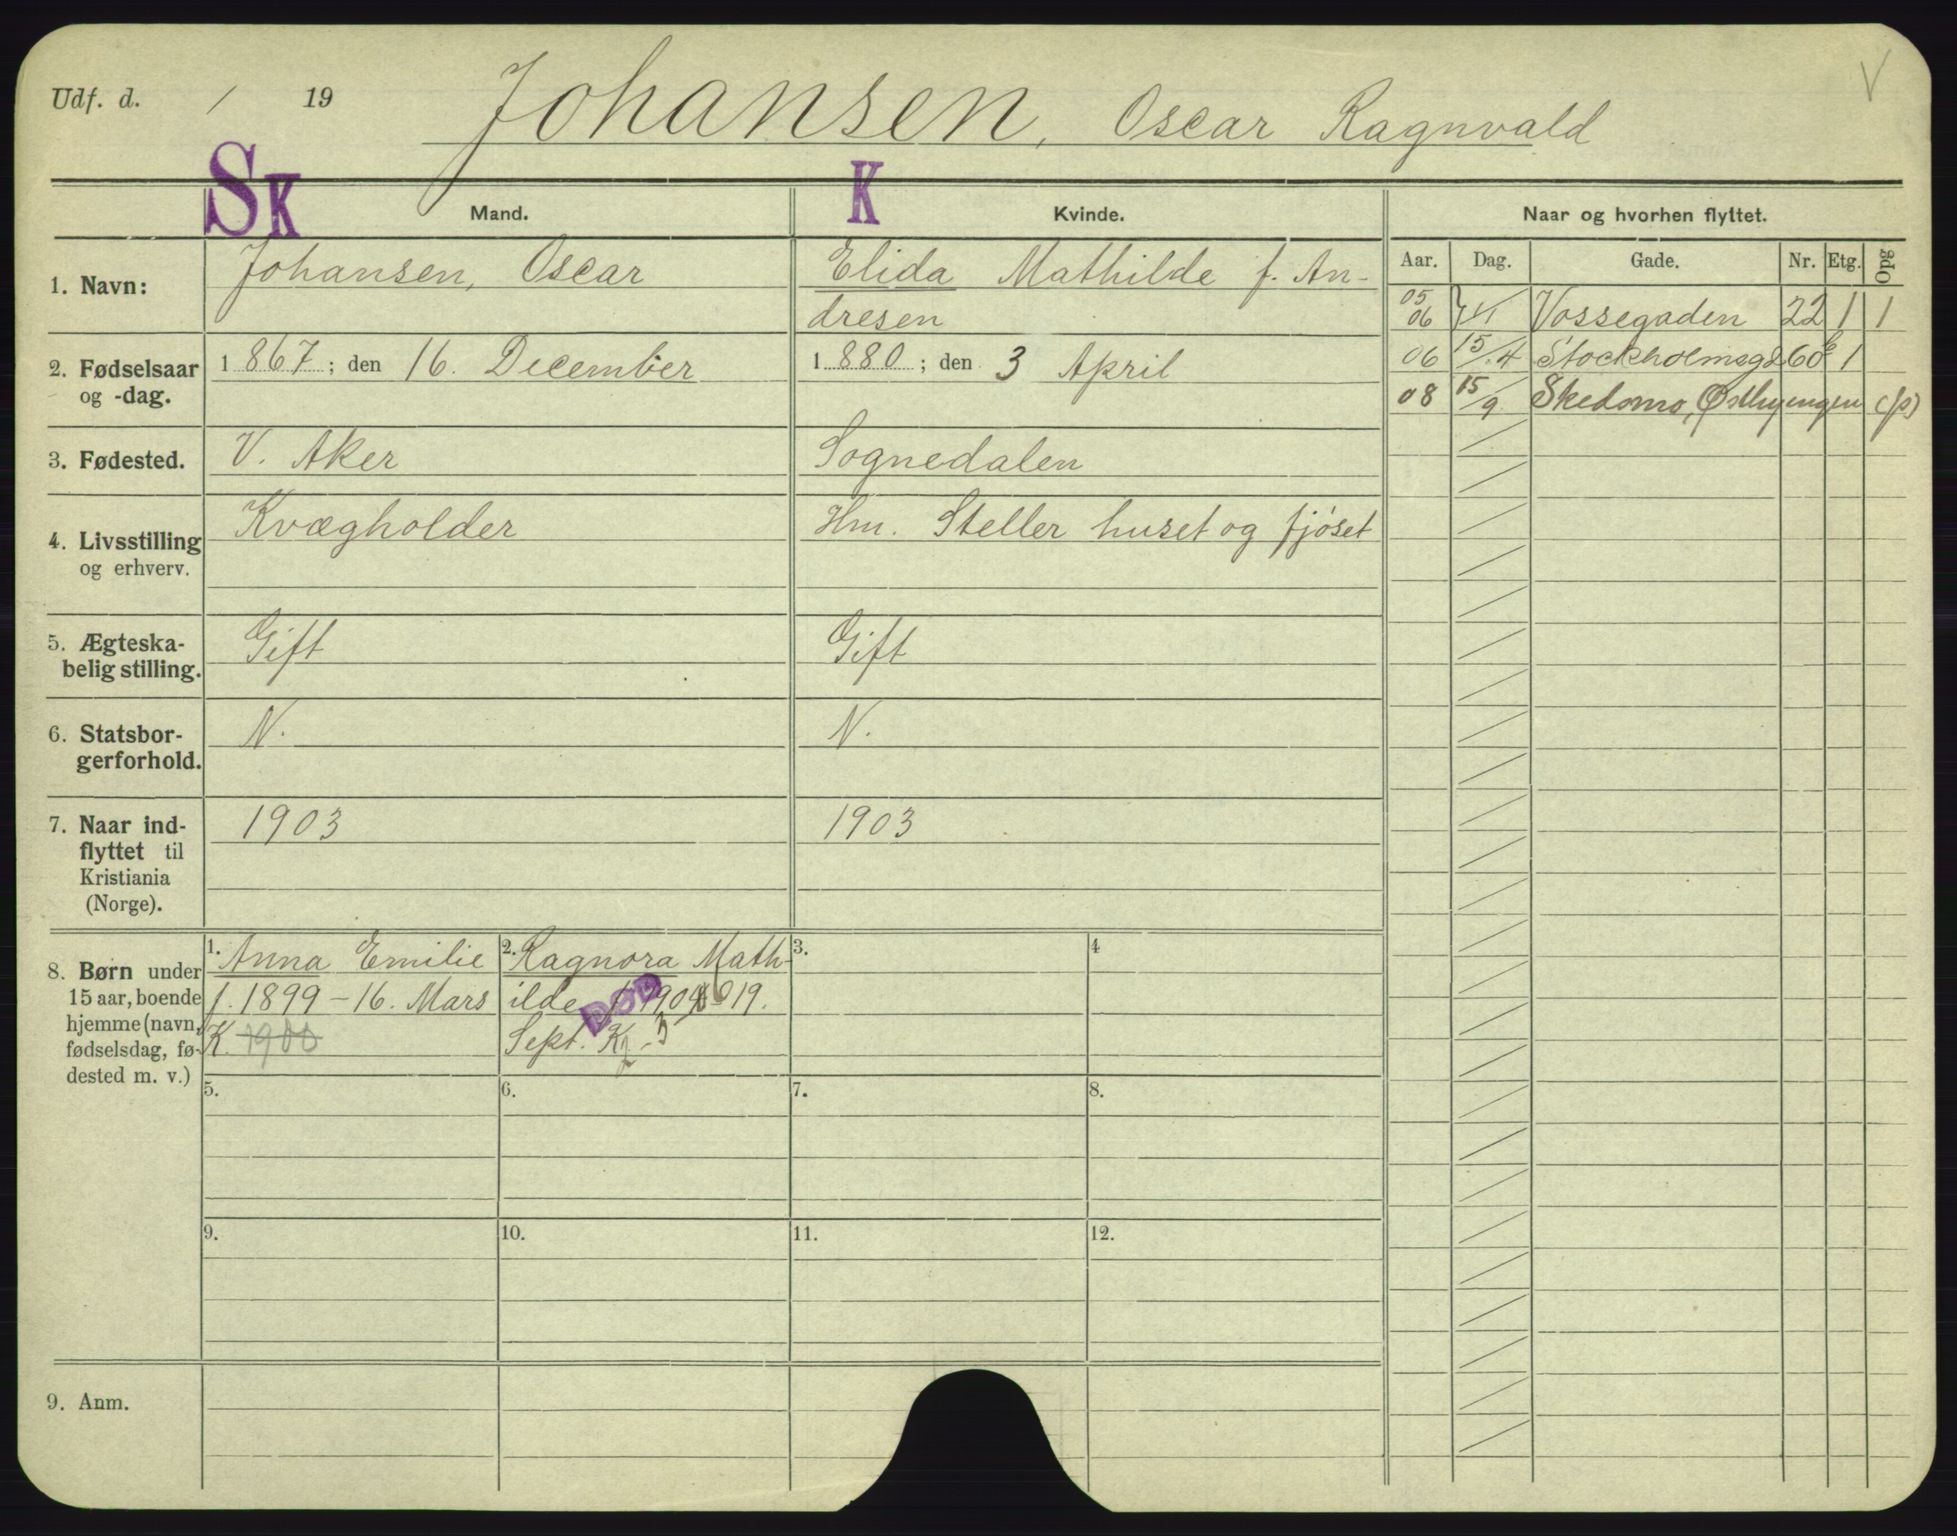 Udf. d. / 19 Johansen, Oscar Ragnvald V
SK K
Mand. Kvinde. Naar og hvorhen flyttet.
Aar. Dag. Gade. Nr. Etg. Opg
1. Navn: Johansen, Oscar Elida Mathilde f. An-
dresen
05
06 Vossegaden 22 1 1
2. Fødselsaar
og -dag. 1867; den 16. December 1880; den 3 April
06 15/4 Stockholmsgd 60 1
08 15/9 Skedsmo,
3. Fødested. V. Aker Sognedalen
4. Livsstilling
og erhverv. Kvægholder Hm. Steller huset og fjøset
5. Ægteska-
belig stilling. Gift Gift
6. Statsbor-
gerforhold. N. N.
7. Naar ind-
flyttet til
Kristiania
(Norge). 1903 1903
8. Børn under
15 aar, boende
hjemme (navn,
fødselsdag, fø-
dested m. v.)
1. Anna Emilie
f. 1899 - 16. Mars
K. 1900
2. Ragnora Math-
ilde 19.
Sept. K
DØD
3.
4
5.
6.
7.
8.
9.
10.
11.
12.
9. Anm.